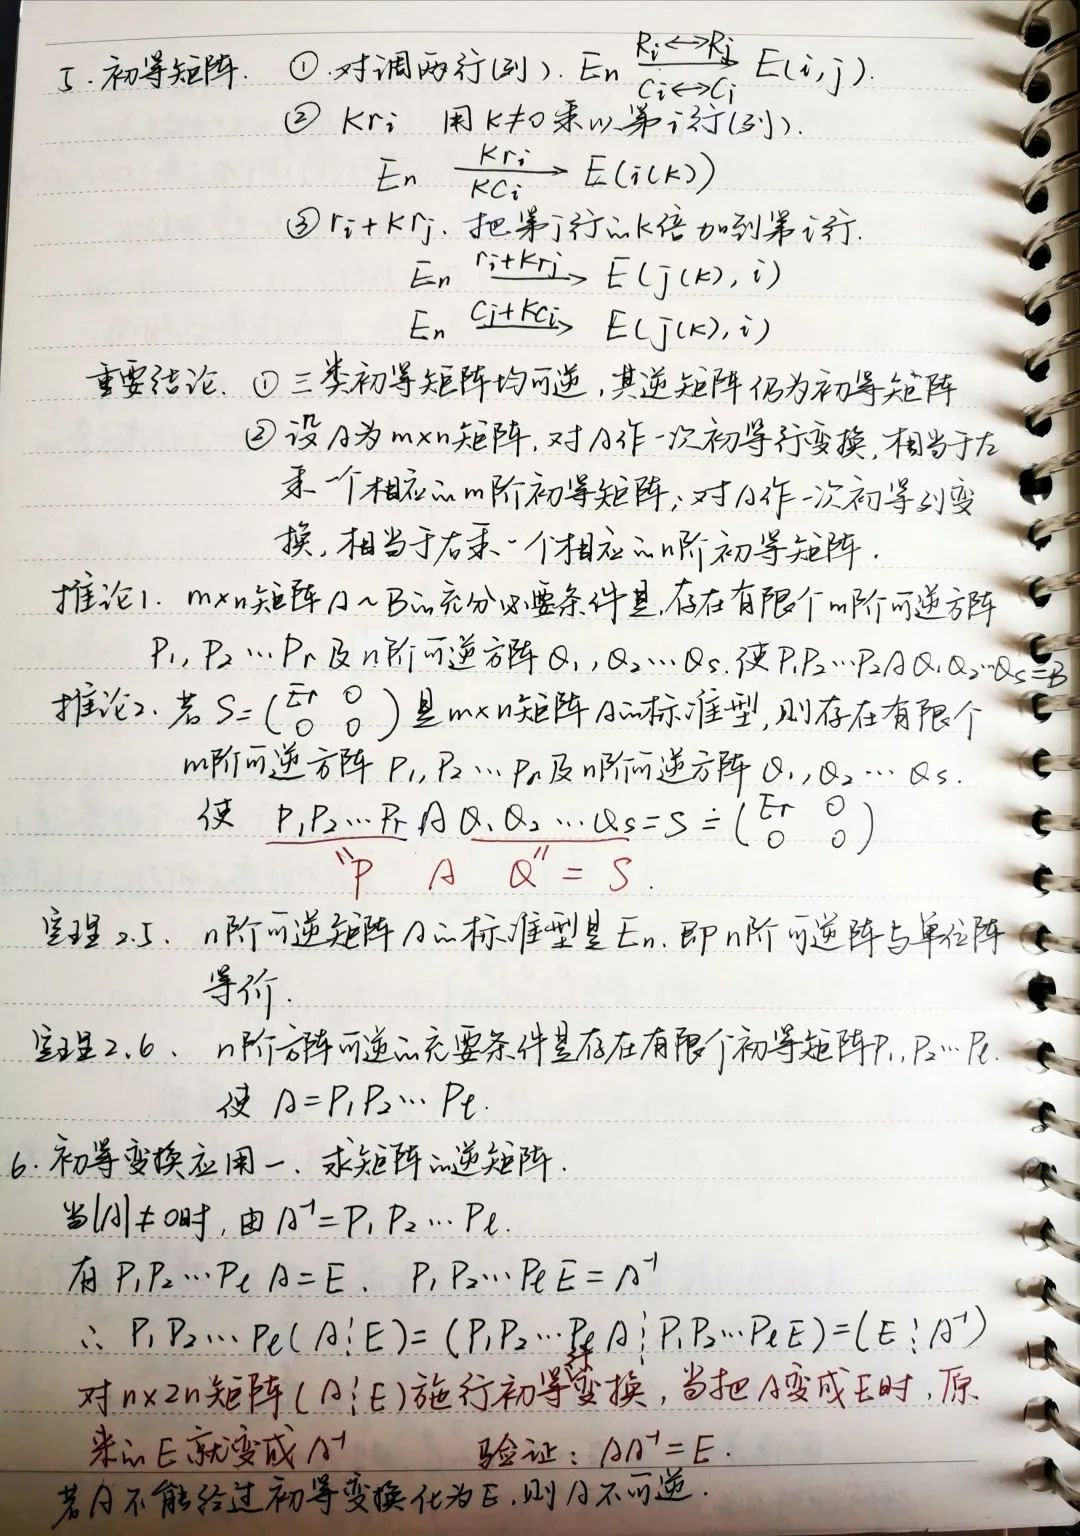 5. 初等矩阵. ① 对调两行(列). En Ri↔Rj Ci↔Cj E(i,j).
② Kri 用K≠0乘以第i行(列).
En Kri KCi → E(i(K))
③ ri+Krj. 把第j行的K倍加到第i行.
En ri+Krj → E(j(K),i)
En Cj+KCi → E(j(K),i)
重要结论. ① 三类初等矩阵均可逆,其逆矩阵仍为初等矩阵
② 设A为m×n矩阵,对A作一次初等行变换,相当于左
乘一个相应的m阶初等矩阵;对A作一次初等列变
换,相当于右乘一个相应的n阶初等矩阵.
推论1. m×n矩阵A~B的充分必要条件是,存在有限个m阶可逆方阵
P1,P2…Pr及n阶可逆方阵Q1,Q2…Qs.使P1P2…P2AQ1Q2…Qs=B
推论2. 若S=(Er 0 0 0)是m×n矩阵A的标准型,则存在有限个
m阶可逆方阵P1,P2…Pr及n阶可逆方阵Q1,Q2…Qs.
使 P1P2…Pr A Q1Q2…Qs=S≐(Er 0 0 0)
"P A Q" = S.
定理2.5、 n阶可逆矩阵A的标准型是En.即n阶可逆阵与单位阵
等价.
定理2.6、 n阶方阵可逆的充要条件是存在有限个初等矩阵P1,P2…Pl.
使A=P1P2…Pl.
6. 初等变换应用一、求矩阵的逆矩阵.
当|A|≠0时,由A⁻¹=P1P2…Pl.
有P1P2…PlA=E、 P1P2…PlE=A⁻¹
∴ P1P2…Pl(A⋮E)=(P1P2…PlA⋮P1P2…PlE)=(E⋮A⁻¹)
对n×2n矩阵(A⋮E)施行初等行变换,当把A变成E时,原
来的E就变成A⁻¹ 验证:AA⁻¹=E.
若A不能经过初等变换化为E,则A不可逆.